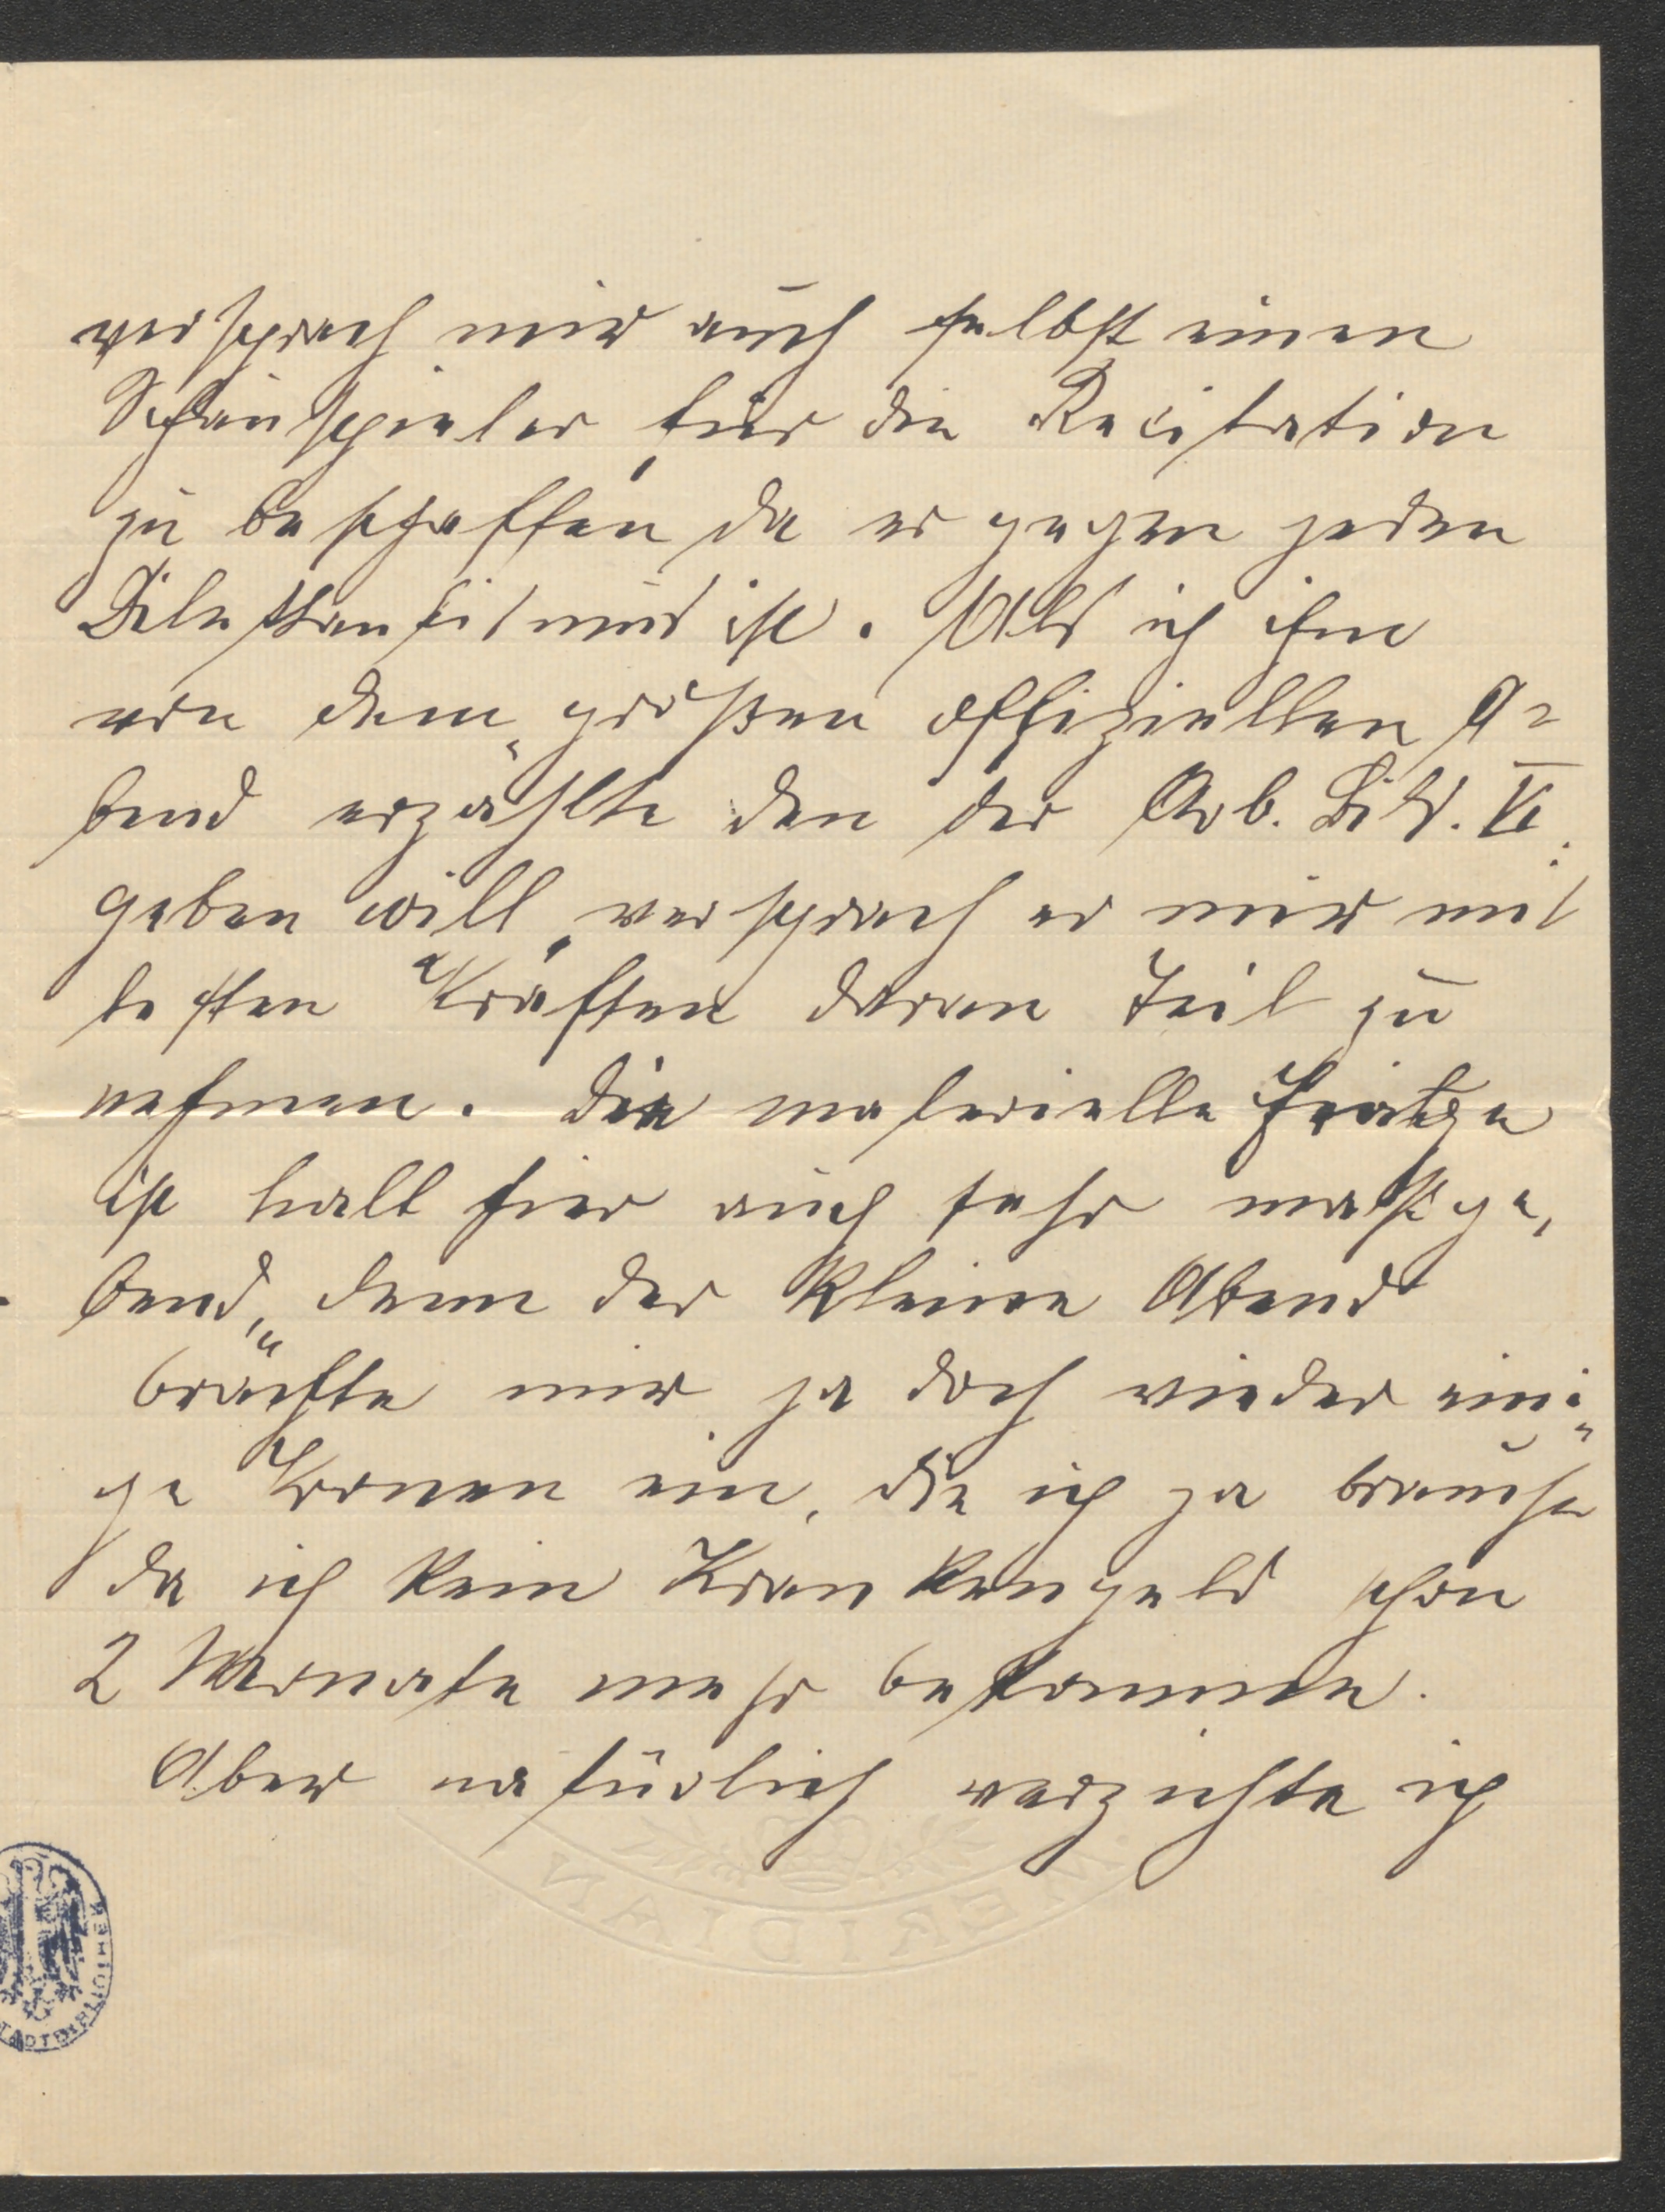 versprach mir auch selbst einen
Schauspieler für die Recitation
zu beschaffen da er gegen jeden
Dilettantismus ist. Als ich ihm
von dem größen offiziellen A=
bend erzählte den der Arb. Bild. V.
geben will, versprach er mir mit
besten Kräften daran Teil zu
nehmen. Die materielle Frage
ist halt hier auch sehr maßge,
bend, denn der kleine Abend
brächte mir ja doch wieder eini=
ge Kronen ein, die ich ja brauche
da ich kein Krankengeld schon
2 Monate mehr bekomme.
Aber natürlich verzichte ich
MERIDIAN
STADTBIBLIOTHEK